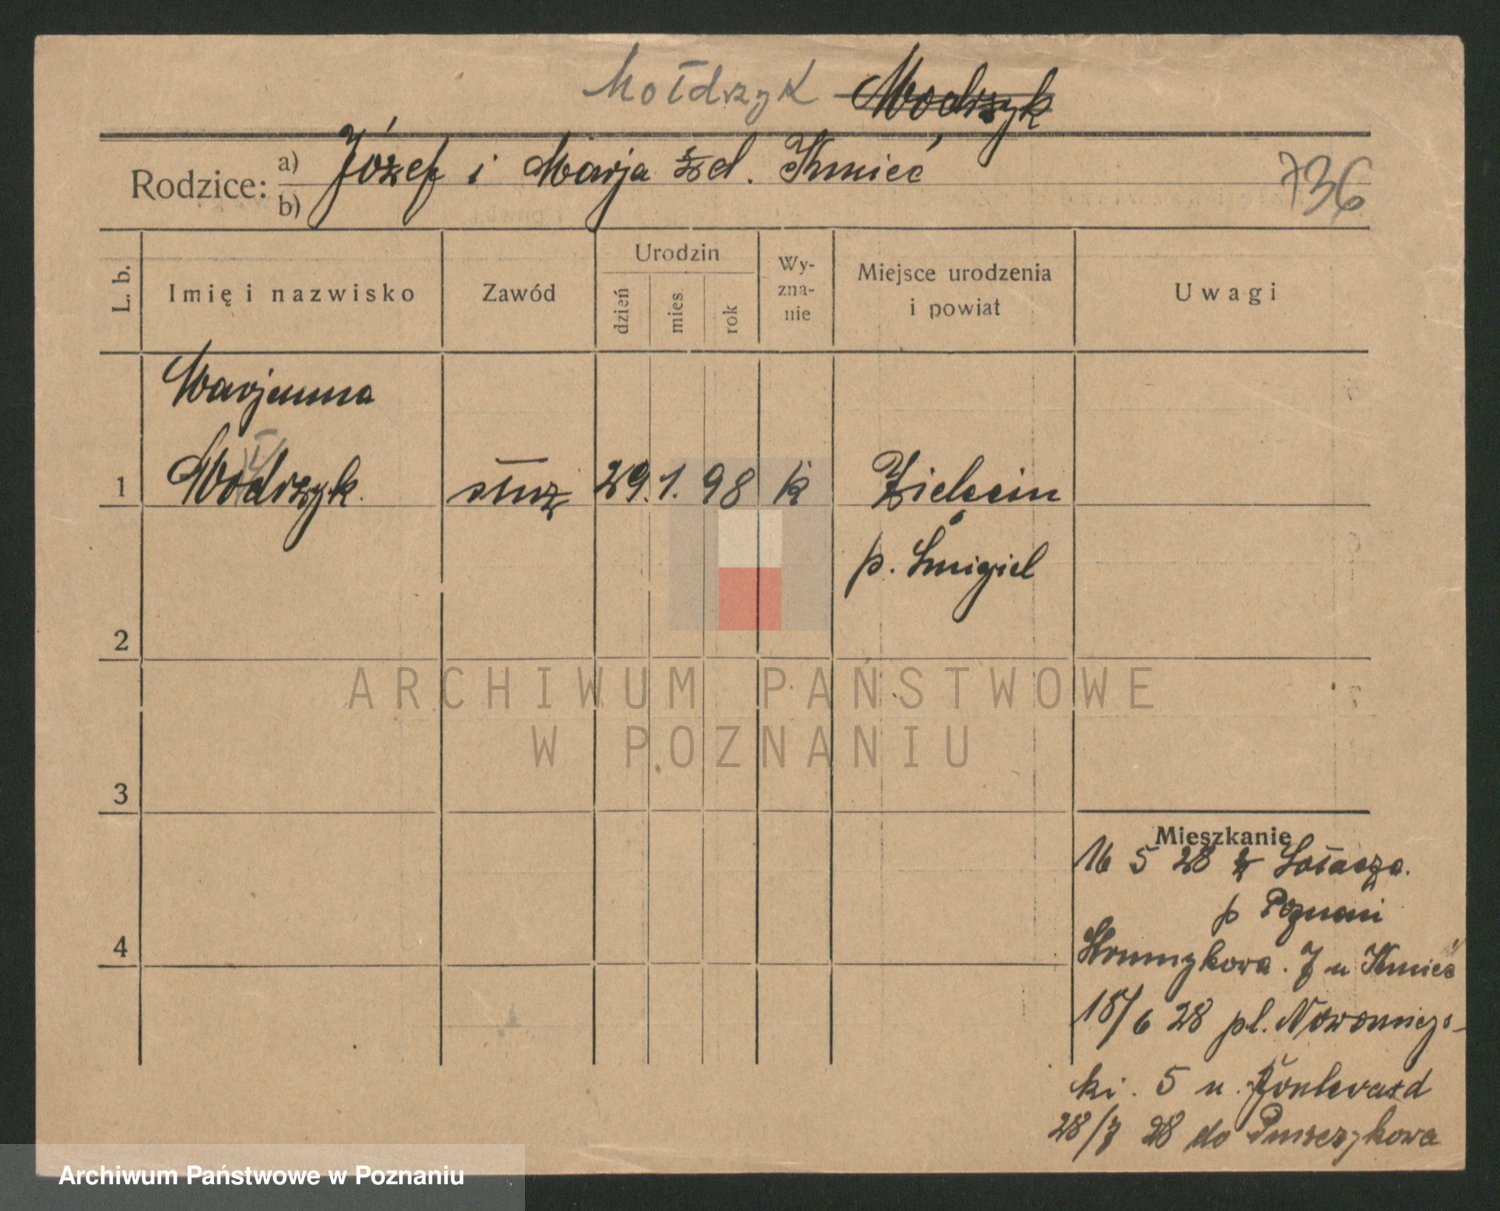 Mołdrzyk Modrzyk
Rodzice: a) Józef i Marja zd. Kmieć
b)
736
L. b.
Imię i nazwisko
Zawód
Urodzin
dzień
mies.
rok
Wy-
zna-
nie
Miejsce urodzenia
i powiat
Uwagi
Marjanna
1 Modrzyk. służ 29. 1. 98 k Zielęcin
p. Śmigiel
2
3
4
Mieszkanie
16 5 28 z
p Poznań
Strumykowa. 7 u Kmieć
18/6 28 pl. Nowomiejs-
ki. 5 u.
28/7 28 do
ARCHIWUM PAŃSTWOWE
W POZNANIU
Archiwum Państwowe w Poznaniu